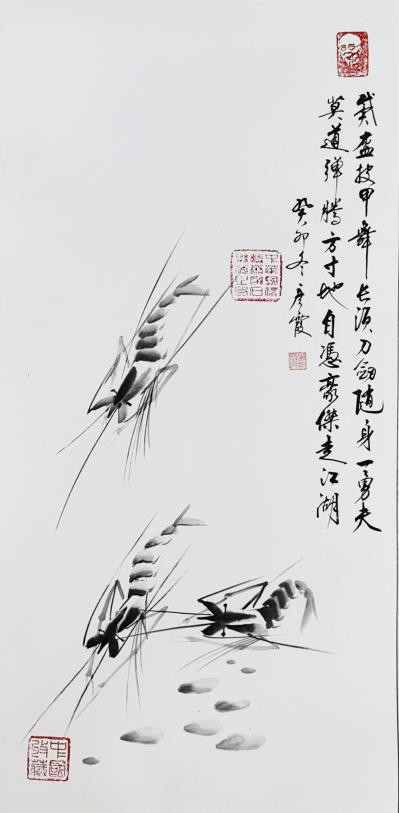 戴盔披甲舞长须刀剑随身一勇夫
莫道弹腾方寸地自憑豪傑走江湖
癸卯冬彦霞
中國收藏